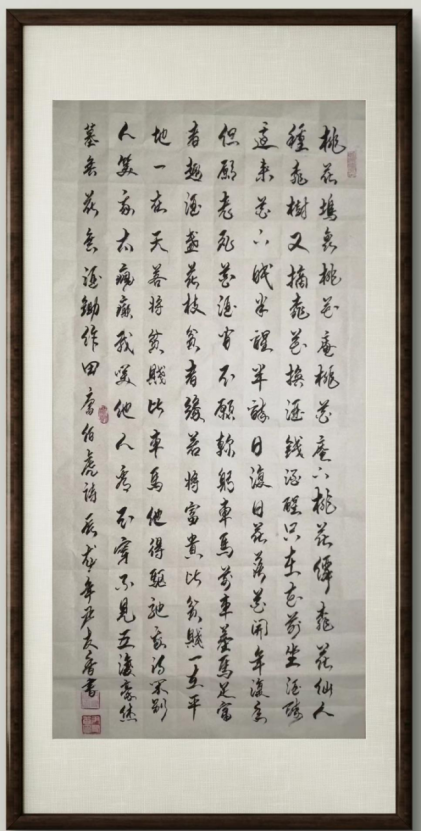 桃花塢裏桃花庵桃花庵下桃花僊桃花仙人
種桃樹又摘桃花換酒錢酒醒只在花前坐酒醉
還來花下眠半醒半醉日復日花落花開年復年
但願老死花酒間不願鞠躬車馬前車塵馬足富
者趣酒盞花枝貧者緣若將富貴比貧賤一在平
地一在天若將貧賤比車馬他得驅馳我得閑別
人笑我太瘋癲我笑他人看不穿不見五陵豪傑
墓無花無酒鋤作田唐伯虎詩辰龙年書